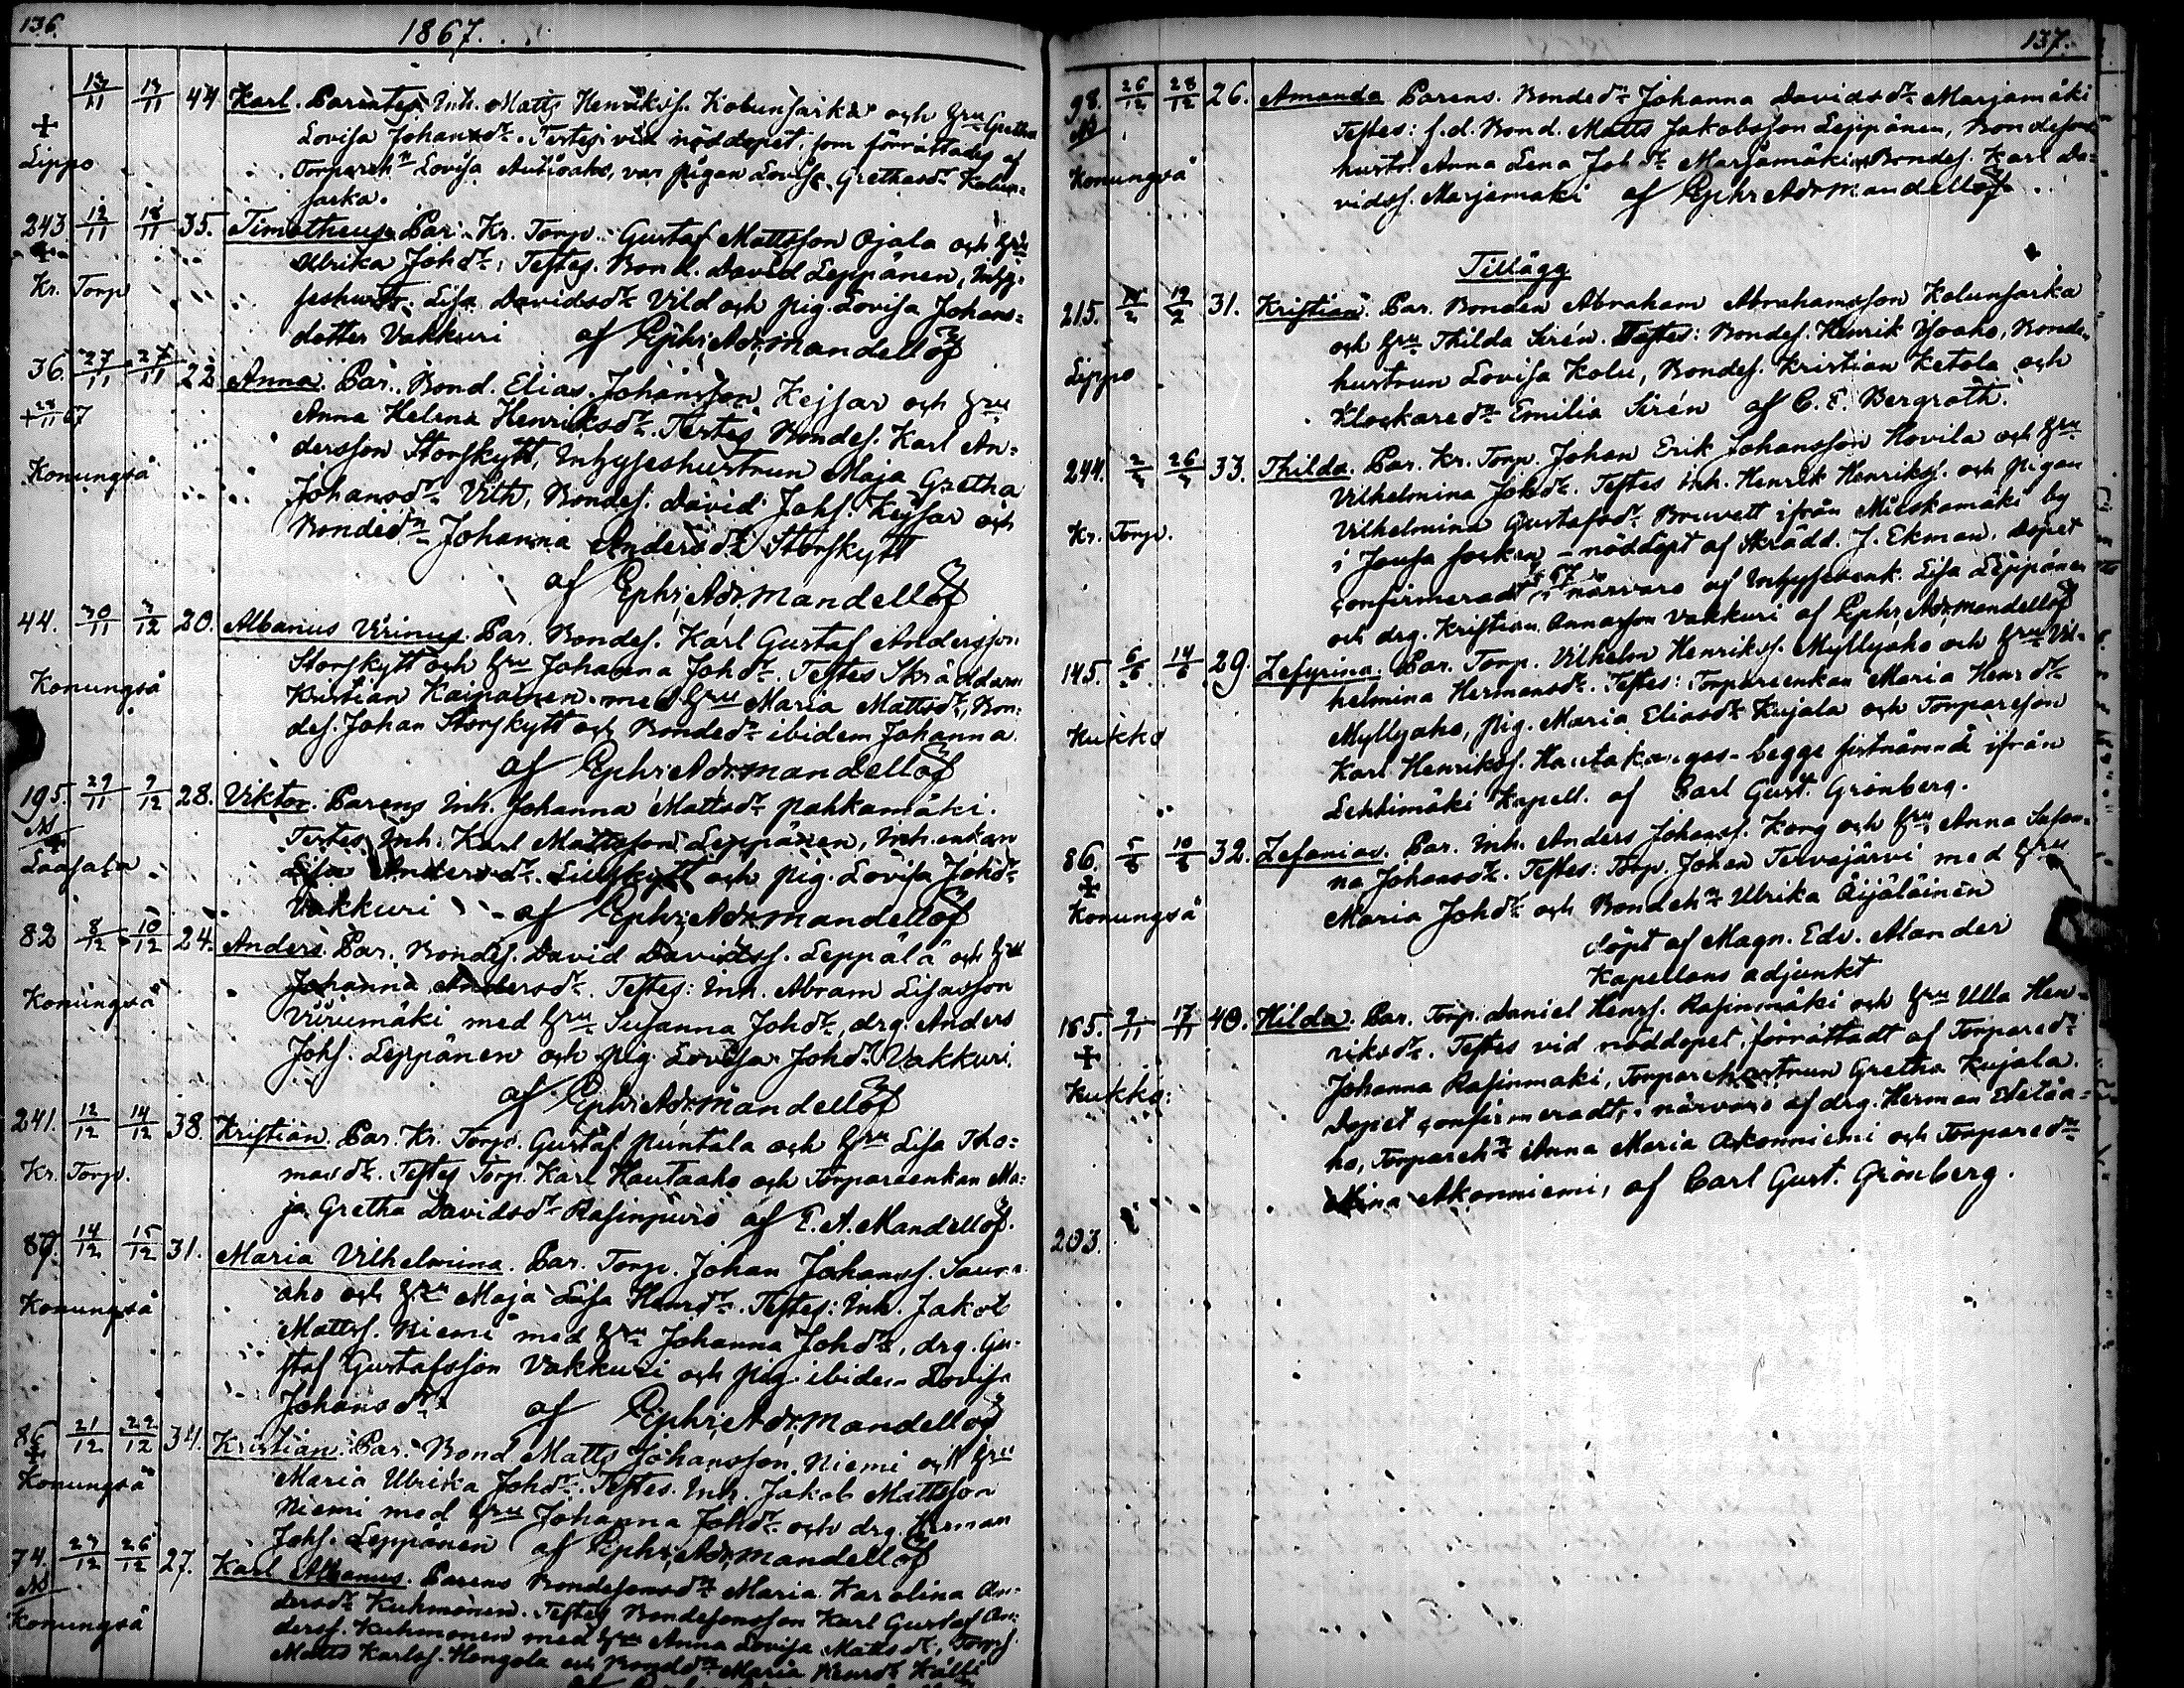 136.
1867.
13/11 13/11 44 Karl. Parentes Inh. Matts Henrikss. Kolunsarka och hru Gretha
+ Lovisa Johansdr. Testes vid nöddopet, som förrättades af
Lippo Torpareh Lovisa Autioaho, var pigan Lovisa Grethasdr Kolun=
sarka.
243 12/11 18/11 35. Timotheus. Par. Kr. Torp. Gustaf Mattsson Ojala och hru
+ Ulrika Johdr. Testes. Bond. David Leppänen, Inhy=
Kr. Torp seshustr. Lisa Davidsdr Vild och pig. Lovisa Johans=
dotter Vakkuri af Ephr. Adr. Mandellöf
36. 27/11 27/11 22 Anna. Par. Bond. Elias Johansson Kejsar och hru
+ 28/11 67 Anna Helena Henriksdr. Testes Bondes. Karl An=
dersson Storskytt, Inhyseshustrun Maja Gretha
Konungså Johansdr Vith, Bondes. David Johs. Kejsar och
Bondedr Johanna Andersdr Storskytt
af Ephr. Adr. Mandellöf
44. 30/11 3/12 20. Albanus Verinus. Par. Bondes. Karl Gustaf Andersson
Storskytt och hru Johanna Johdr. Testes Skräddare
Konungså Kristian Kaipainen med hru Maria Mattsdr, Bon=
des. Johan Storskytt och Bondedr ibidem Johanna.
af Ephr. Adr. Mandellöf
195. 29/11 9/12 28. Viktor. Parens Inh. Johanna Mattsdr Pahkamäki.
Testes Inh. Karl Mattsson Leppänen, Inh.enkan
Laasala Lisa Andersdr. och pig. Lovisa Johdr
Vakkuri af Ephr. Adr. Mandellöf
82 8/12 10/12 24. Anders. Par. Bondes. David Davidss. Leppälä och hru
Johanna Andersdr. Testes: Inh. Abram Lisasson
Konungså med hru Susanna Johdr, drg. Anders
Johs. Leppänen och pig. Lovisa Johdr Vakkuri.
af Ephr. Adr. Mandellöf
241. 12/12 14/12 38. Kristian. Par. Kr. Torp. Gustaf Puntala och hru Lisa Tho=
Kr. Torp. masdr. Testes Torp. Karl Hautaaho och Torpareenkan Ma=
ja Gretha Davidsdr Rasinpuro af E. A. Mandellöf.
87. 14/12 15/12 31. Maria Vilhelmina. Par. Torp. Johan Johanss.
aho och hru Maja Lisa Henrdr. Testes: Inh. Jakob
Konungså Mattss. Niemi med hru Johanna Johdr, drg. Gu=
staf Gustafsson Vakkuri och pig. ibidem Lovisa
Johansdr af Ephr. Adr. Mandellöf
86 21/12 22/12 34. Kristian. Par. Bond Matts Johansson Niemi och hru
+ Maria Ulrika Johdr. Testes. Inh. Jakob Mattsson
Konungså Niemi med hru Johanna Johdr och drg. Herman
Johs. Leppänen af Ephr. Adr. Mandellöf
74. 12 26/12 27. Karl Albanus. Parens Bondesonsdr Maria Karolina An=
dersdr Kuhmonen. Testes Bondesonsson Karl Gustaf An=
Konungså derss. Kuhmonen med hru Anna Lovisa Mattsdr, Torps.
Matts Karlss. Hangola och Bonddr Maria Henrdr Källi
137.
98. 26/12 28/12 26. Amanda Parens. Bondedr Johanna Davidsdr Marjamäki
Testes: f.d. Bond. Matts Jakobsson Leppänen, Bondesons
Konungså hustr. Anna Lena Johdr Marjamäki, Bondes. Karl Da=
vidss. Marjamaki af Ephr Adr Mandellöf
Tillägg
215. 19/2 31. Kristian. Par. Bonden Abraham Abrahamsson Kolunsarka
och hru Thilda Sirén. Testes: Bondes. Henrik Ylioaho, Bonde
Lippo hustrun Lovisa Kolu, Bondes. Kristian Ketola och
Klockaredr Emilia Sirén af C. E. Bergroth.
244. 33. Thilda. Par. Kr. Torp. Johan Erik Johansson Hovila och hru
Vilhelmina Johdr. Testes Inh. Henrik Henrikss. och pigan
Kr. Torp. Vilhelmina Gustafsdr Bruvett ifrån Mieskamäki by
i socken - nöddöpt af Skrädd. J. Ekman. Dopet
confirmeradt i närvaro af Inhysesenk. Lisa Leppänen
och drg. Kristian Annasson Vakkuri af Ephr. Adr. Mandellöf
145. 29. Zefyrina. Par. Torp. Vilhelm Henrikss. Myllyaho och hru Vil=
helmina Hermansdr. Testes: Torpareenkan Maria Henrdr
Kukko Myllyaho, pig. Maria Eliasdr Kujala och Torpareson
Karl Henrikss. Hautakangas - begge förstnämnda ifrån
Lehtimäki Kapell. af Carl Gust. Grönberg.
86. 32. Zefanias. Par. Inh. Anders Johanss. Korg och hru Anna Susan=
+ na Johansdr. Testes: Torp. Johan Tervajärvi med hru
Konungså Maria Johdr och Bondeh Ulrika Äijäläinen
döpt af Magn. Edv. Alander
Kapellans adjunkt
165. 9/11 17/11 40. Hilda. Par. Torp. Daniel Henrs. Rasinmäki och hru Ulla Hen=
+ riksdr. Testes vid nöddopet, förrättadt af Torparedr
Kukko: Johanna Rasinmaki, Torparehustrun Gretha Kujala.
Dopet confirmeradt, i närvaro af drg. Herman
ho, Torpareh Anna Maria Akonniemi och Torparedr
Mina Akonniemi, af Carl Gust. Grönberg.
203.